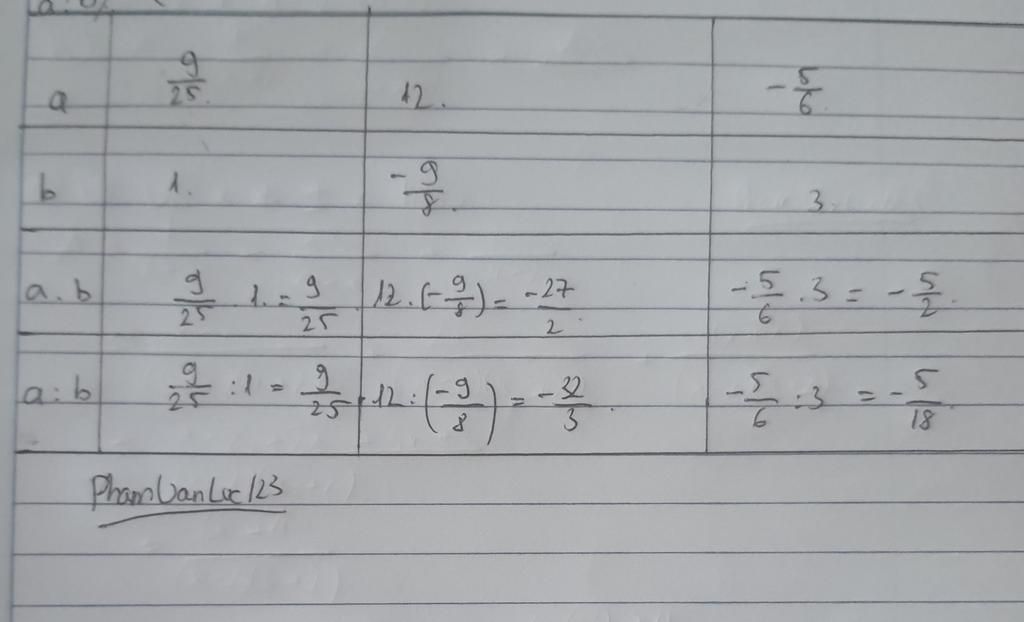 a : b
a 9/25. 12. -5/6.
b 1. -9/8. 3.
a.b 9/25 . 1. = 9/25. 12.(-9/8) = -27/2. -5/6 .3 = -5/2.
a:b 9/25 :1 = 9/25. 12:(-9/8) = -32/3. -5/6 :3 = -5/18.
PhamVanLoc123